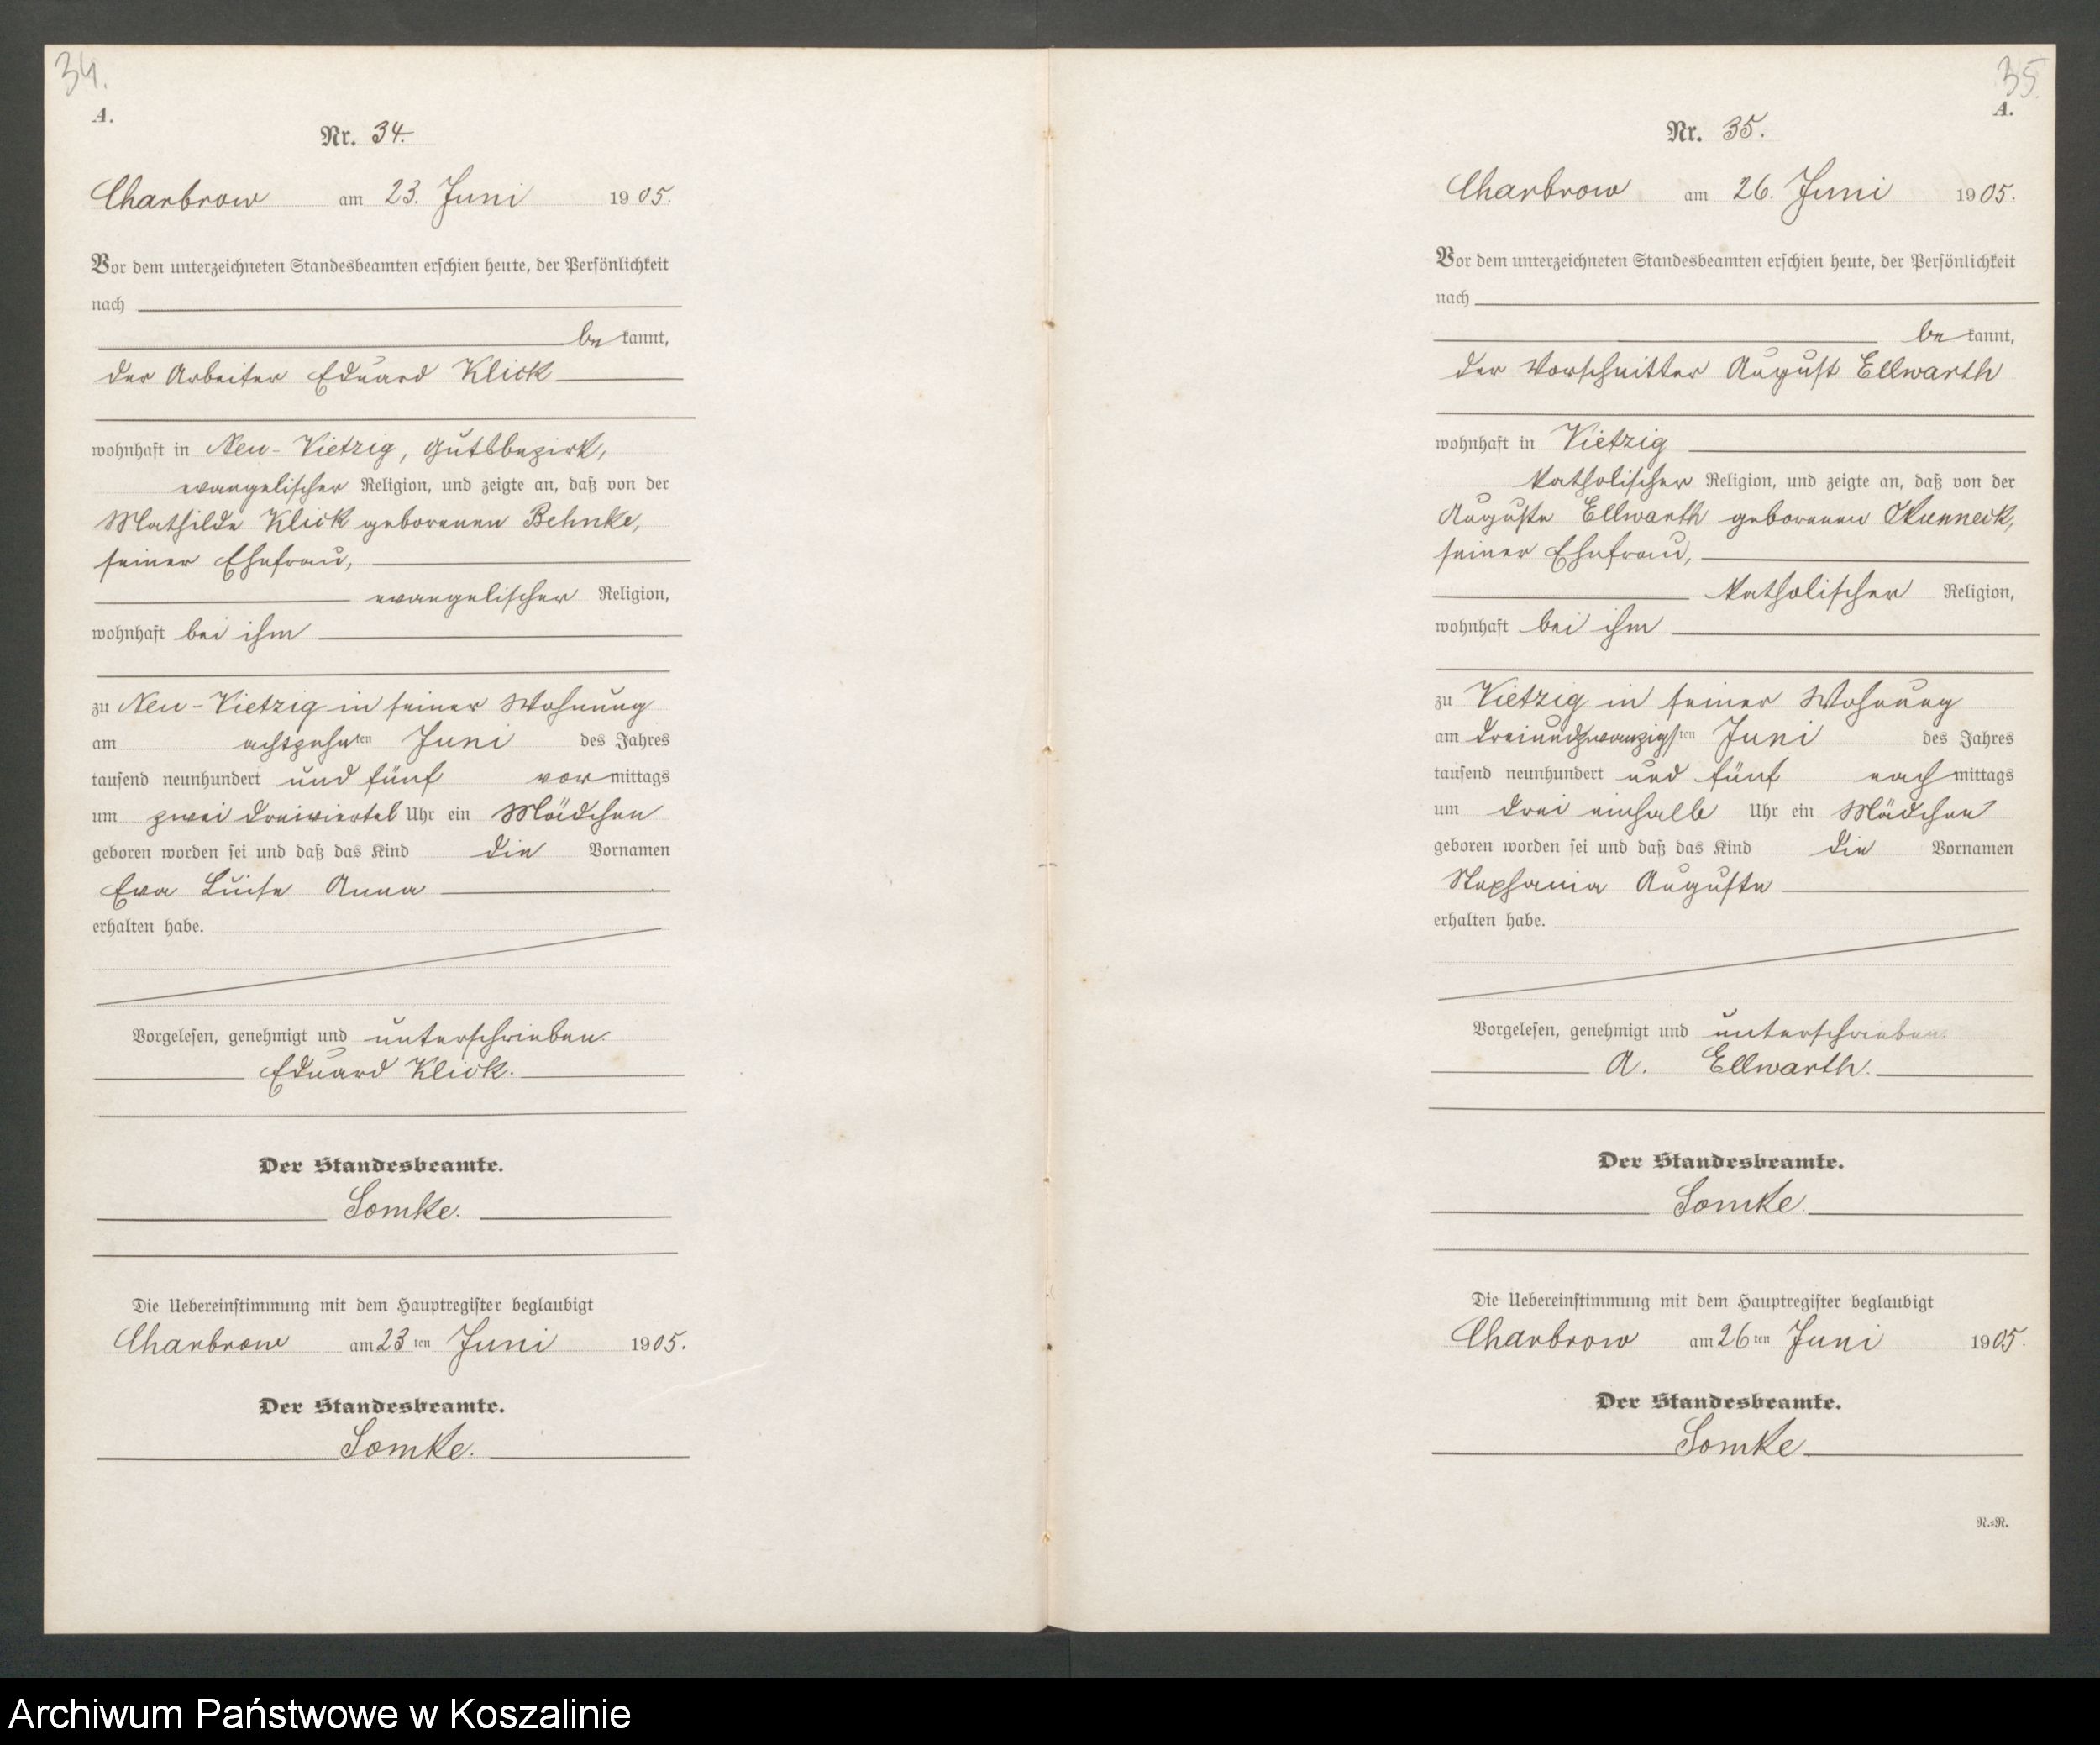 34.
A.
Nr. 34.
Charbrow am 23. Juni 1905.
Vor dem unterzeichneten Standesbeamten erschien heute, der Persönlichkeit
nach
be kannt,
der Arbeiter Eduard Klick
wohnhaft in Neu-Vietzig, Gutsbezirk,
evangelischer Religion, und zeigte an, daß von der
Mathilde Klick geborenen Behnke,
seiner Ehefrau,
evangelischer Religion,
wohnhaft bei ihm
zu Neu-Vietzig in seiner Wohnung
am achtzehnten Juni des Jahres
tausend neunhundert und fünf vormittags
um zwei dreiviertel Uhr ein Mädchen
geboren worden sei und daß das Kind die Vornamen
Eva Luise Anna
erhalten habe.
Vorgelesen, genehmigt und unterschrieben.
Eduard Klick.
Der Standesbeamte.
Somke.
Die Uebereinstimmung mit dem Hauptregister beglaubigt
Charbrow am 23ten Juni 1905.
Der Standesbeamte.
Somke.
35.
A.
Nr. 35.
Charbrow am 26. Juni 1905.
Vor dem unterzeichneten Standesbeamten erschien heute, der Persönlichkeit
nach
be kannt,
der Vorschnitter August Ellwarth
wohnhaft in Vietzig
katholischer Religion, und zeigte an, daß von der
Auguste Ellwarth geborenen
seiner Ehefrau,
katholischer Religion,
wohnhaft bei ihm
zu Vietzig in seiner Wohnung
am dreiundzwanzigsten Juni des Jahres
tausend neunhundert und fünf nachmittags
um drei einhalb Uhr ein Mädchen
geboren worden sei und daß das Kind die Vornamen
Stephania Auguste
erhalten habe.
Vorgelesen, genehmigt und unterschrieben.
A. Ellwarth.
Der Standesbeamte.
Somke.
Die Uebereinstimmung mit dem Hauptregister beglaubigt
Charbrow am 26ten Juni 1905.
Der Standesbeamte.
Somke
N.=R.
Archiwum Państwowe w Koszalinie